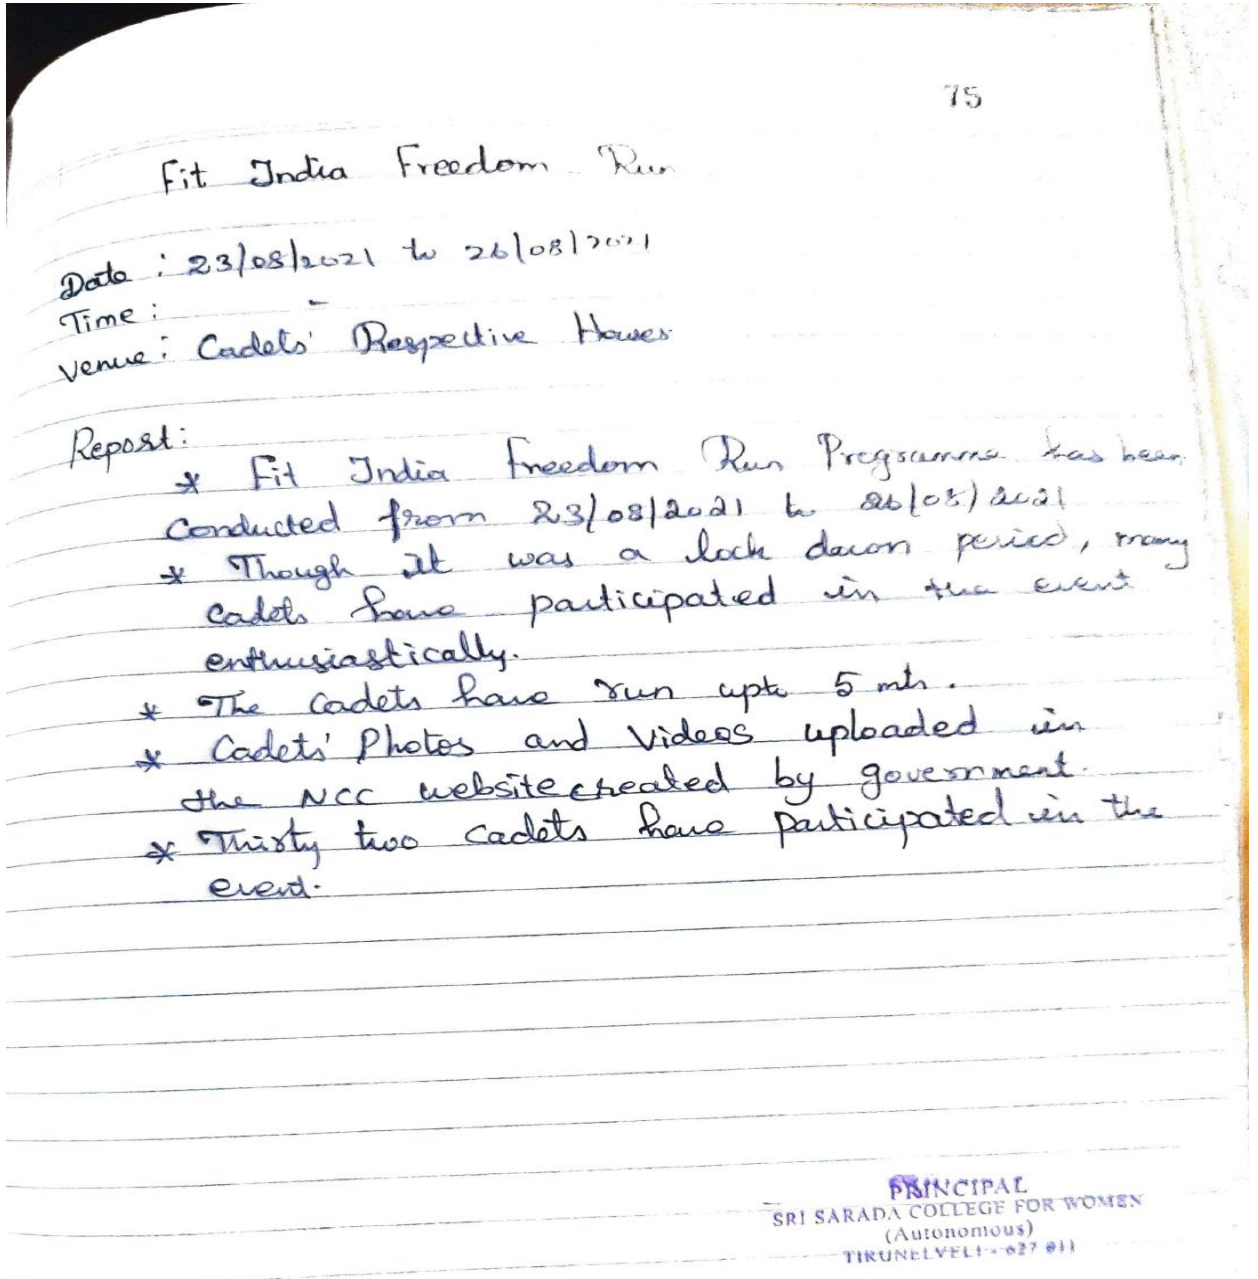 75
Fit India Freedom Run
Date : 23/08/2021 to 26/08/2021
Time : -
Venue : Cadets' Respective Houses
Report:
* Fit India Freedom Run Programme has been
Conducted from 23/08/2021 to 26/08/2021
* Though it was a lock down period, many
cadets have participated in the event
enthusiastically.
* The Cadets have run upto 5 mts.
* Cadets' Photos and Videos uploaded in
the NCC website created by government.
* Thirty two cadets have participated in the
event.
PRINCIPAL
SRI SARADA COLLEGE FOR WOMEN
(Autonomous)
TIRUNELVELI - 627 011